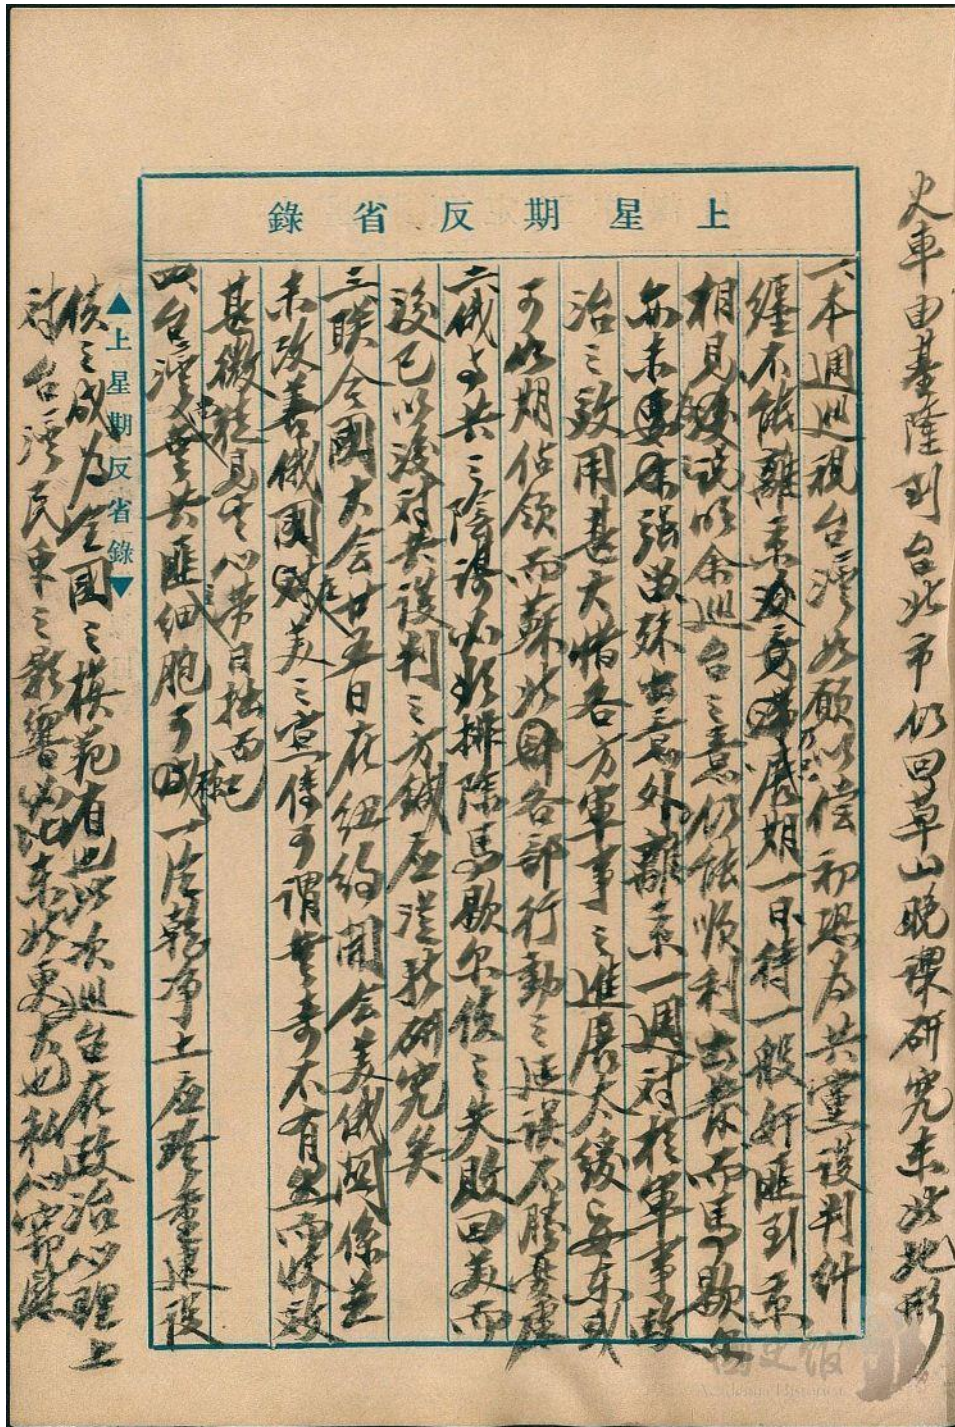 火車由基隆到台北市仍回草山晚課研究東北地形
上星期反省錄
一、本週巡視台灣如願以償初恐為共黨談判糾
纏不能離京後竟展期一日待一般奸匪到京
相見後說明余巡台之意仍能順利出發而馬歇爾
亦未強留殊出意外離京一週對於軍事政
治之效用甚大惜各方軍事之進展太緩安東或
可如期佔領而蘇北各部行動之遲誤不勝憂慮
二、俄與共之陰謀必欲排除馬歇爾使之失敗回美而
後已以後對共談判之方鍼應從新研究矣
三、聯合國大會廿五日在紐約開會美俄關係並
未改善俄國對美之宣傳可謂無奇不有然而收效
甚微徒見其心勞日拙而已
四、台灣尚無共匪細胞可視一片乾淨土應珍重建設
▲上星期反省錄▼
使之成為全國之模範有也此次巡台在政治心理上
對台灣民眾之影響必比東北更大也私心竊慰